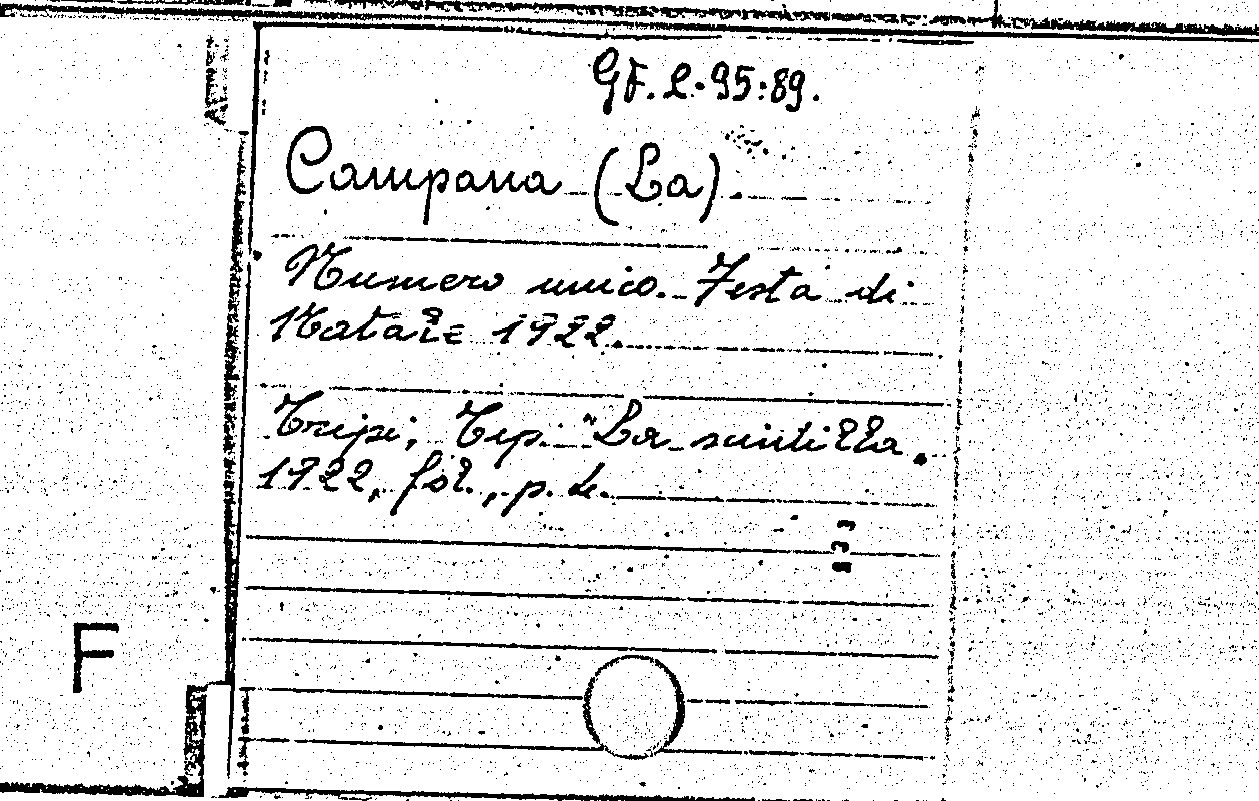 GF. L. 95:89.
Campana (La).
Numero unico. Festa di
Natale 1922.
Tripi, Tip. "La scintilla.
1922, fol., p. 4.
F